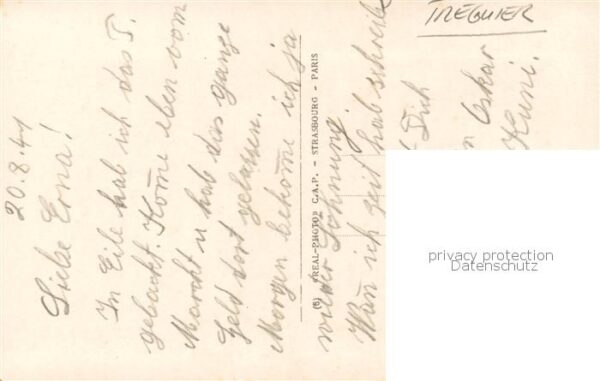 TREGUIER
20.8.41
Liebe Erna!
In Eile hab ich das P.
gebackt. Kome eben vom
Marcht u hab das ganze
Geld dort gelassen.
Morgen bekome ich ja
wieder Löhnung.
Wan ich zeit hab schreibe
Dich
Oskar
Kuni.
(6) REAL-PHOTO C.A.P. - STRASBOURG - PARIS
privacy protection
Datenschutz